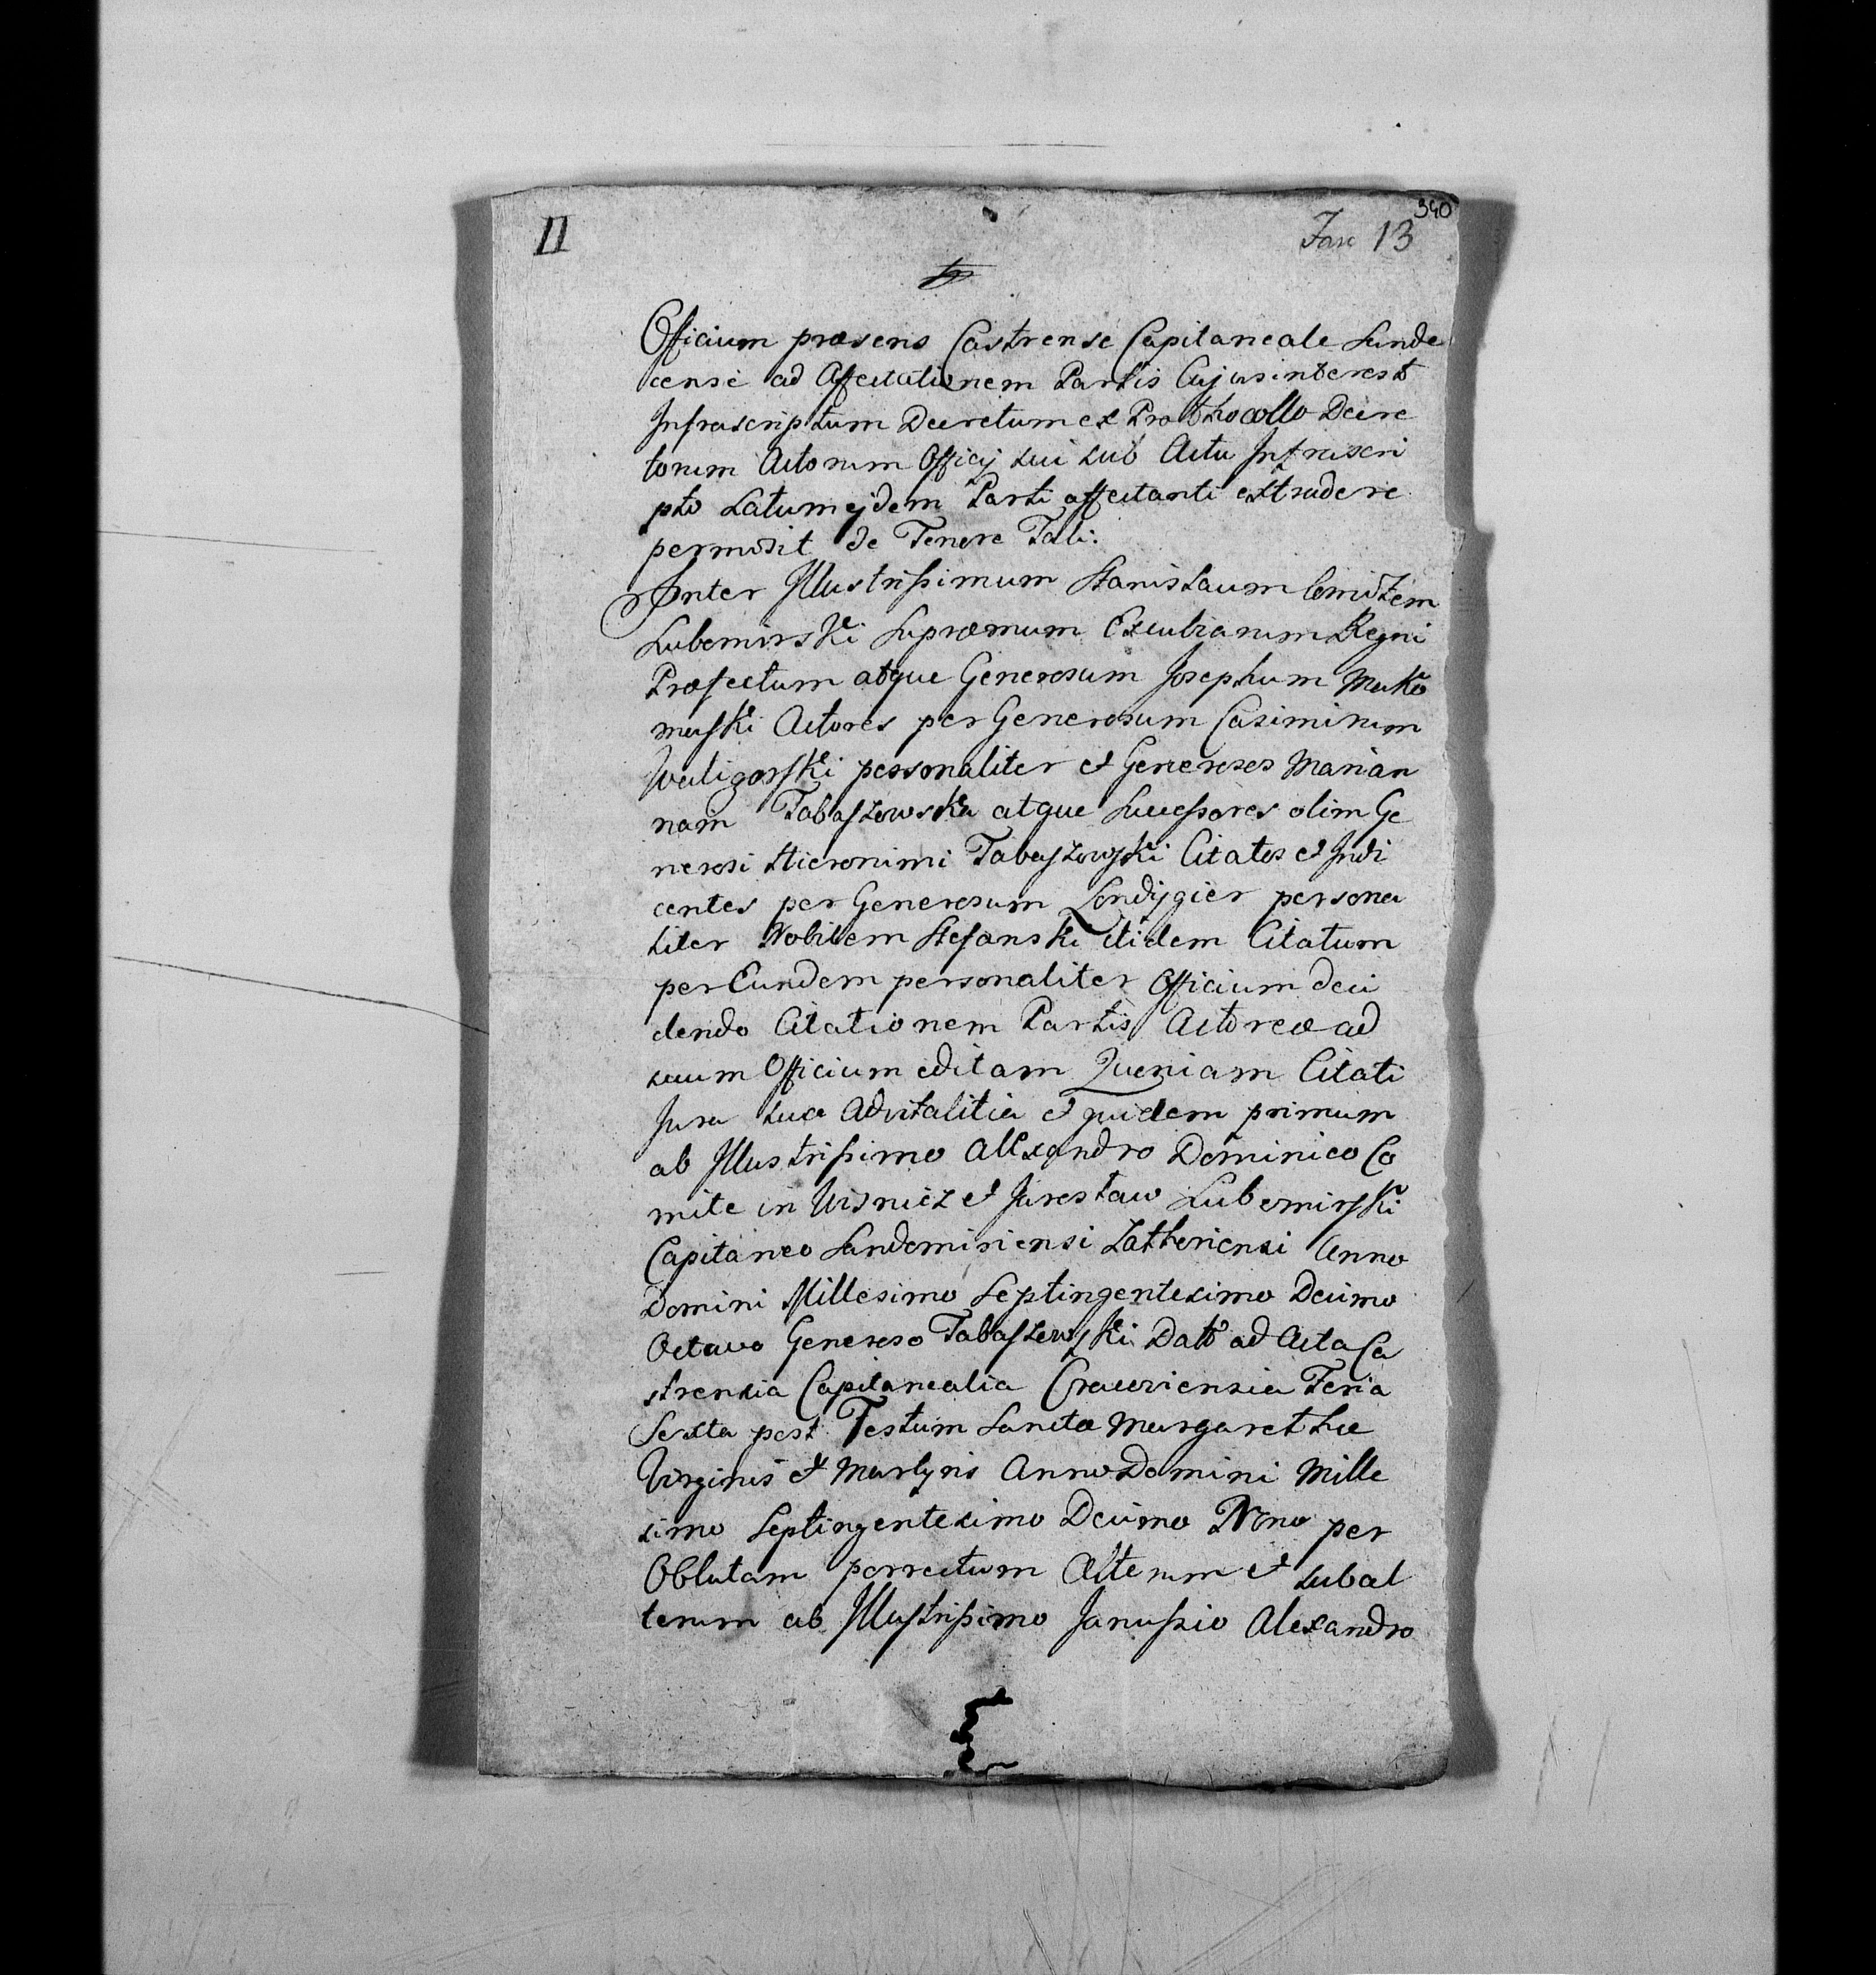 II
Fasc 13
340
Officium præsens Castrense Capitaneale Sande
cense ad Affectationem Partis Cujus interest
Infrascriptum Decretum ex Prothocollo Decre
torum Actorum Officij sui sub Actu Infrascri
pto Latum ejdem Parti affectanti extradere
permisit de Tenore Tali:
Inter Illustrissimum Stanislaum Comitem
Lubomirski Supræmum Excubiarum Regni
Præfectum atque Generosum Josephum
Actores per Generosum Casimirum
Waligorski personaliter et Generosos Marian
nam Tabaszowska atque Successores olim Ge
nerosi Hieronimi Tabaszowski Citatos et Indi
centes per Generosum Londygier persona
liter Nobilem Stefanski itidem Citatum
per Eundem personaliter Officium deci
dendo Citationem Partis Actoreæ ad
suum Officium editam Quoniam Citati
Jura sua Advitalitia et quidem primum
ab Illustrissimo Allexandro Dominico Co
mite in Wisnicz et Jarosław Lubomirski
Capitaneo Sandomiriensi Zathoriensi Anno
Domini Millesimo Septingentesimo Decimo
Octavo Generoso Tabaszowski Dato ad Acta Ca
strensia Capitanealia Cracoviensia Feria
Sexta post Festum Sanctæ Margarethæ
Virginis et Martyris Anno Domini Mille
simo Septingentesimo Decimo Nono per
Oblatam porrectum Alterum et subal
terum ab Illustrissimo Janussio Alexandro